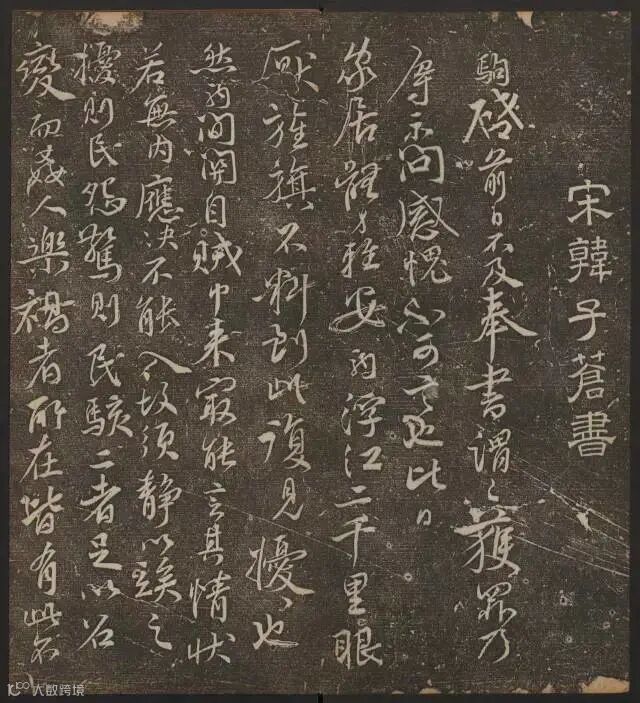 宋韓子蒼書
駒啓前日不及奉書謂獲罪乃
辱示問感愧不可言也比日
家居體力輕安駒浮江二千里眼
厭旌旗不料到此復見擾〻也
然駒間關自賊中來最能言其情狀
若無內應決不能入故須靜以竢之
擾則民怨驚則民駭二者足以召
變而姦人樂禍者所在皆有此不
大数跨境